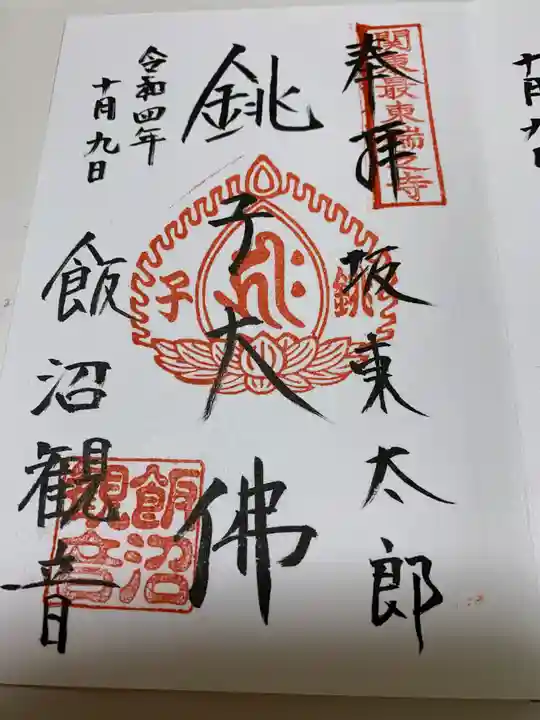 奉拝
関東最東端之寺
坂東太郎
銚子大佛
銚子
令和四年
十月九日
飯沼観音
飯沼
観音
十月九日